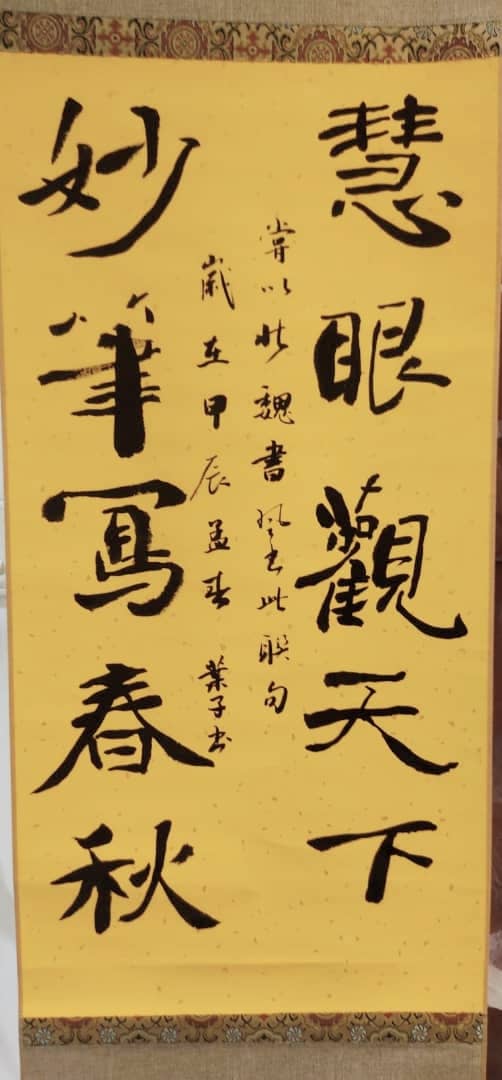 慧眼觀天下
嘗以北魏書風書此聯句
歲在甲辰孟春 葉子書
妙筆寫春秋